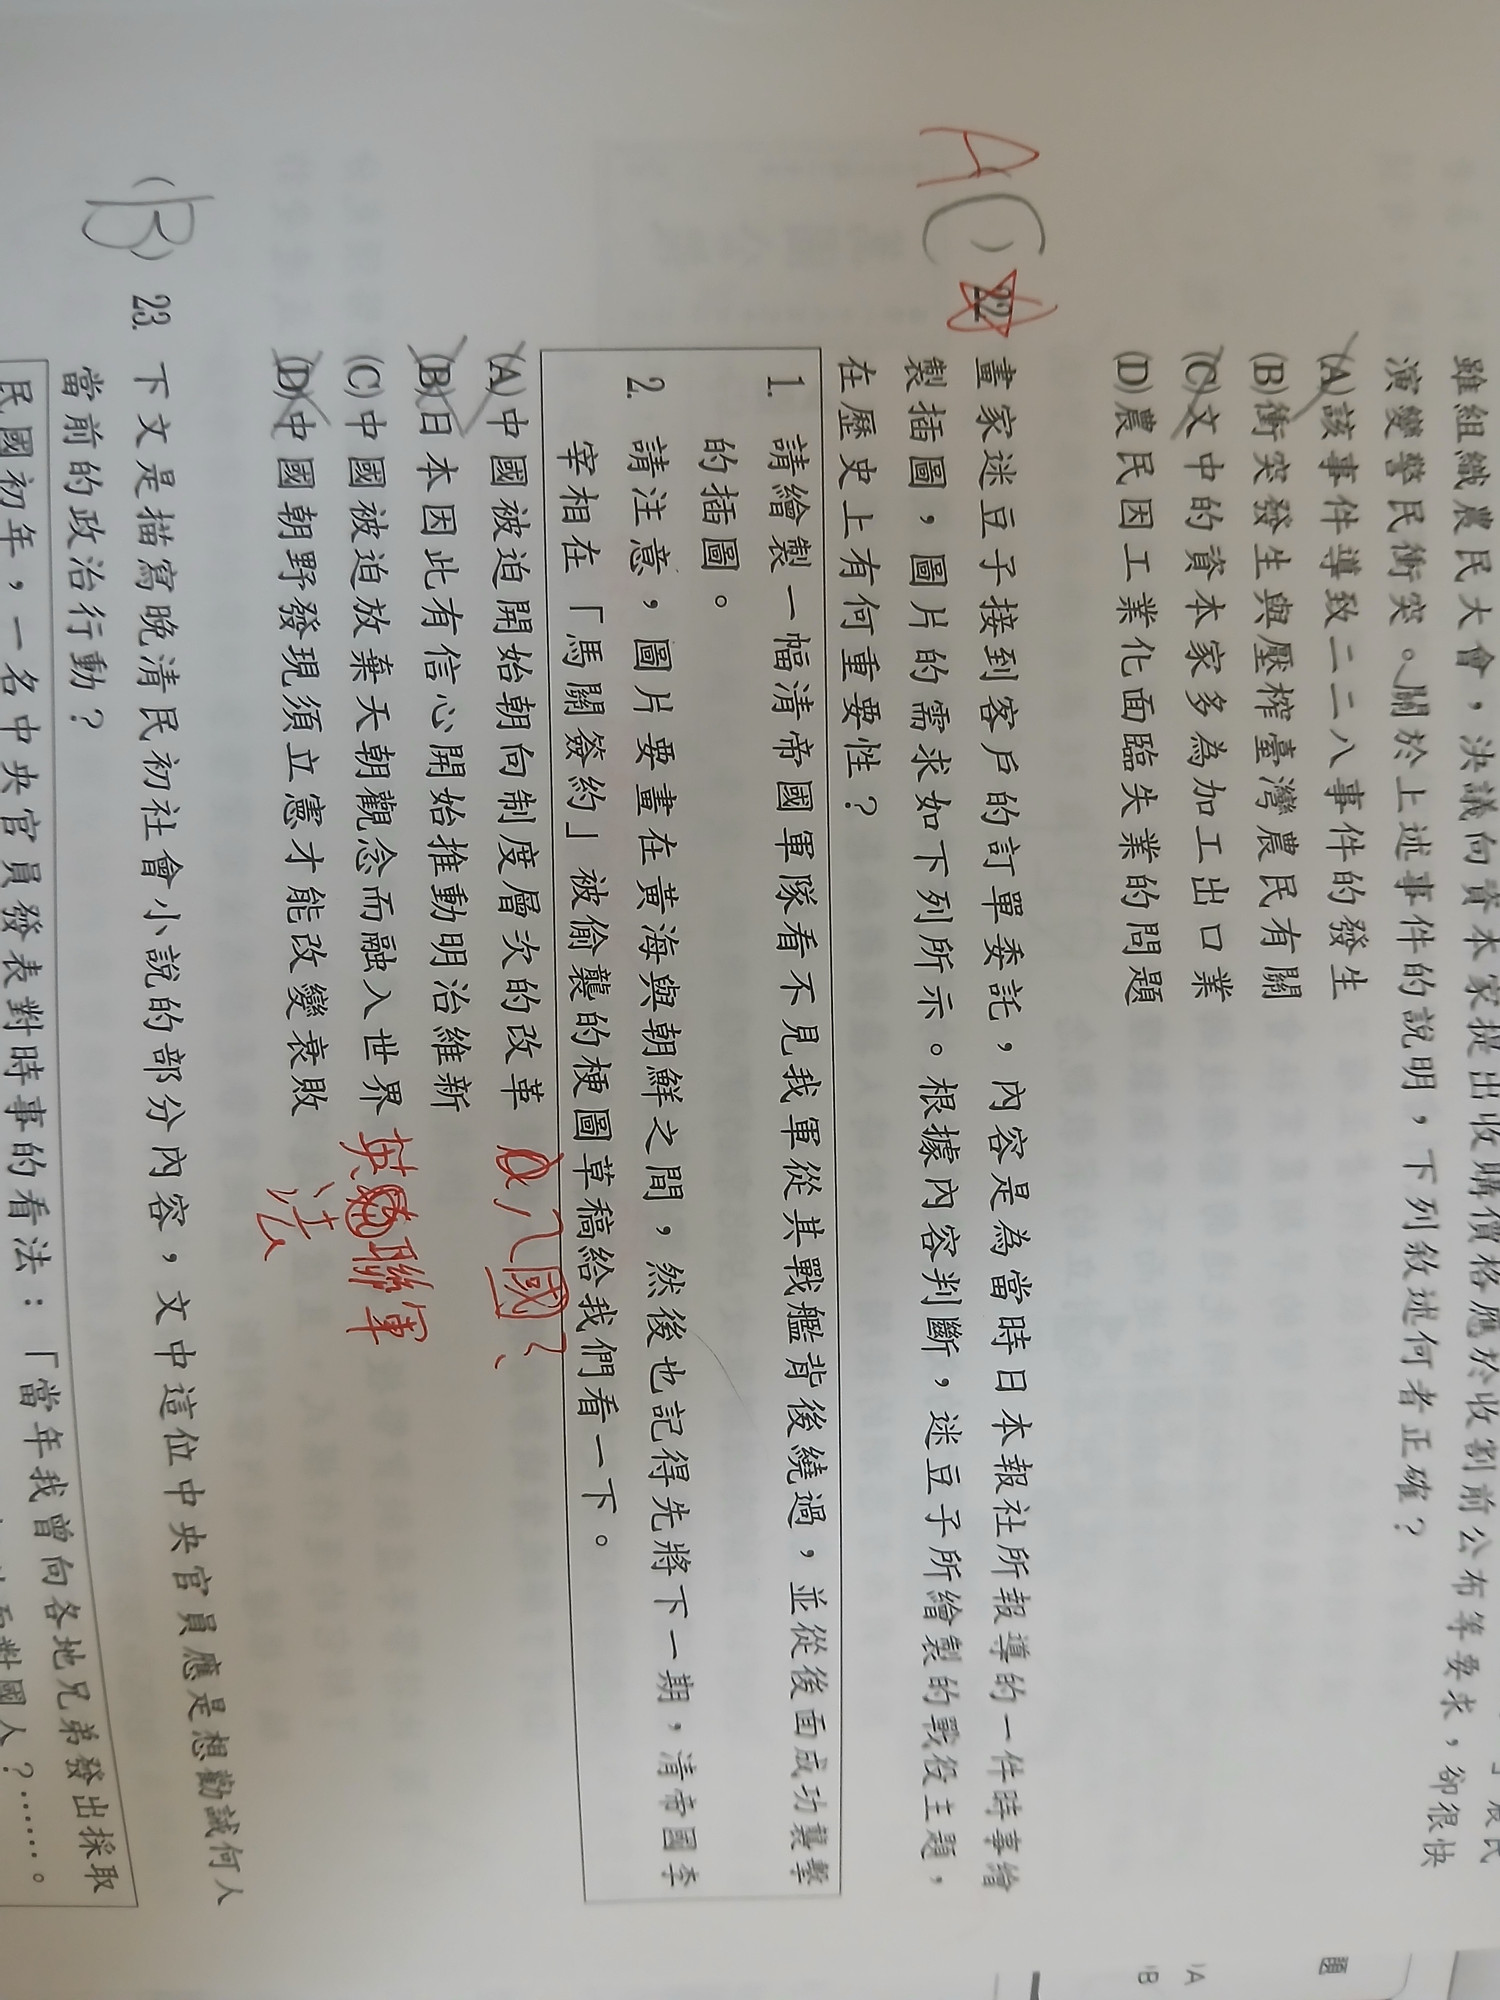 雖組織農民大會，決議向資本家提出收購價格應於收割前公布等要求，卻很快
演變警民衝突。關於上述事件的說明，下列敘述何者正確？
(A)該事件導致二二八事件的發生
(B)衝突發生與壓榨臺灣農民有關
(C)文中的資本家多為加工出口業
(D)農民因工業化面臨失業的問題
A(C) 22. 畫家迷豆子接到客戶的訂單委託，內容是為當時日本報社所報導的一件時事繪
製插圖，圖片的需求如下列所示。根據內容判斷，迷豆子所繪製的戰役主題，
在歷史上有何重要性？
1. 請繪製一幅清帝國軍隊看不見我軍從其戰艦背後繞過，並從後面成功襲擊
的插圖。
2. 請注意，圖片要畫在黃海與朝鮮之間，然後也記得先將下一期，清帝國李
宰相在「馬關簽約」被偷襲的梗圖草稿給我們看一下。
(A)中國被迫開始朝向制度層次的改革
八國
(B)日本因此有信心開始推動明治維新
(C)中國被迫放棄天朝觀念而融入世界
英 聯軍
法
(D)中國朝野發現須立憲才能改變衰敗
(B) 23. 下文是描寫晚清民初社會小說的部分內容，文中這位中央官員應是想勸誡何人
當前的政治行動？
民國初年，一名中央官員發表對時事的看法：「當年我曾向各地兄弟發出採取
對國人？……。
題
A
B